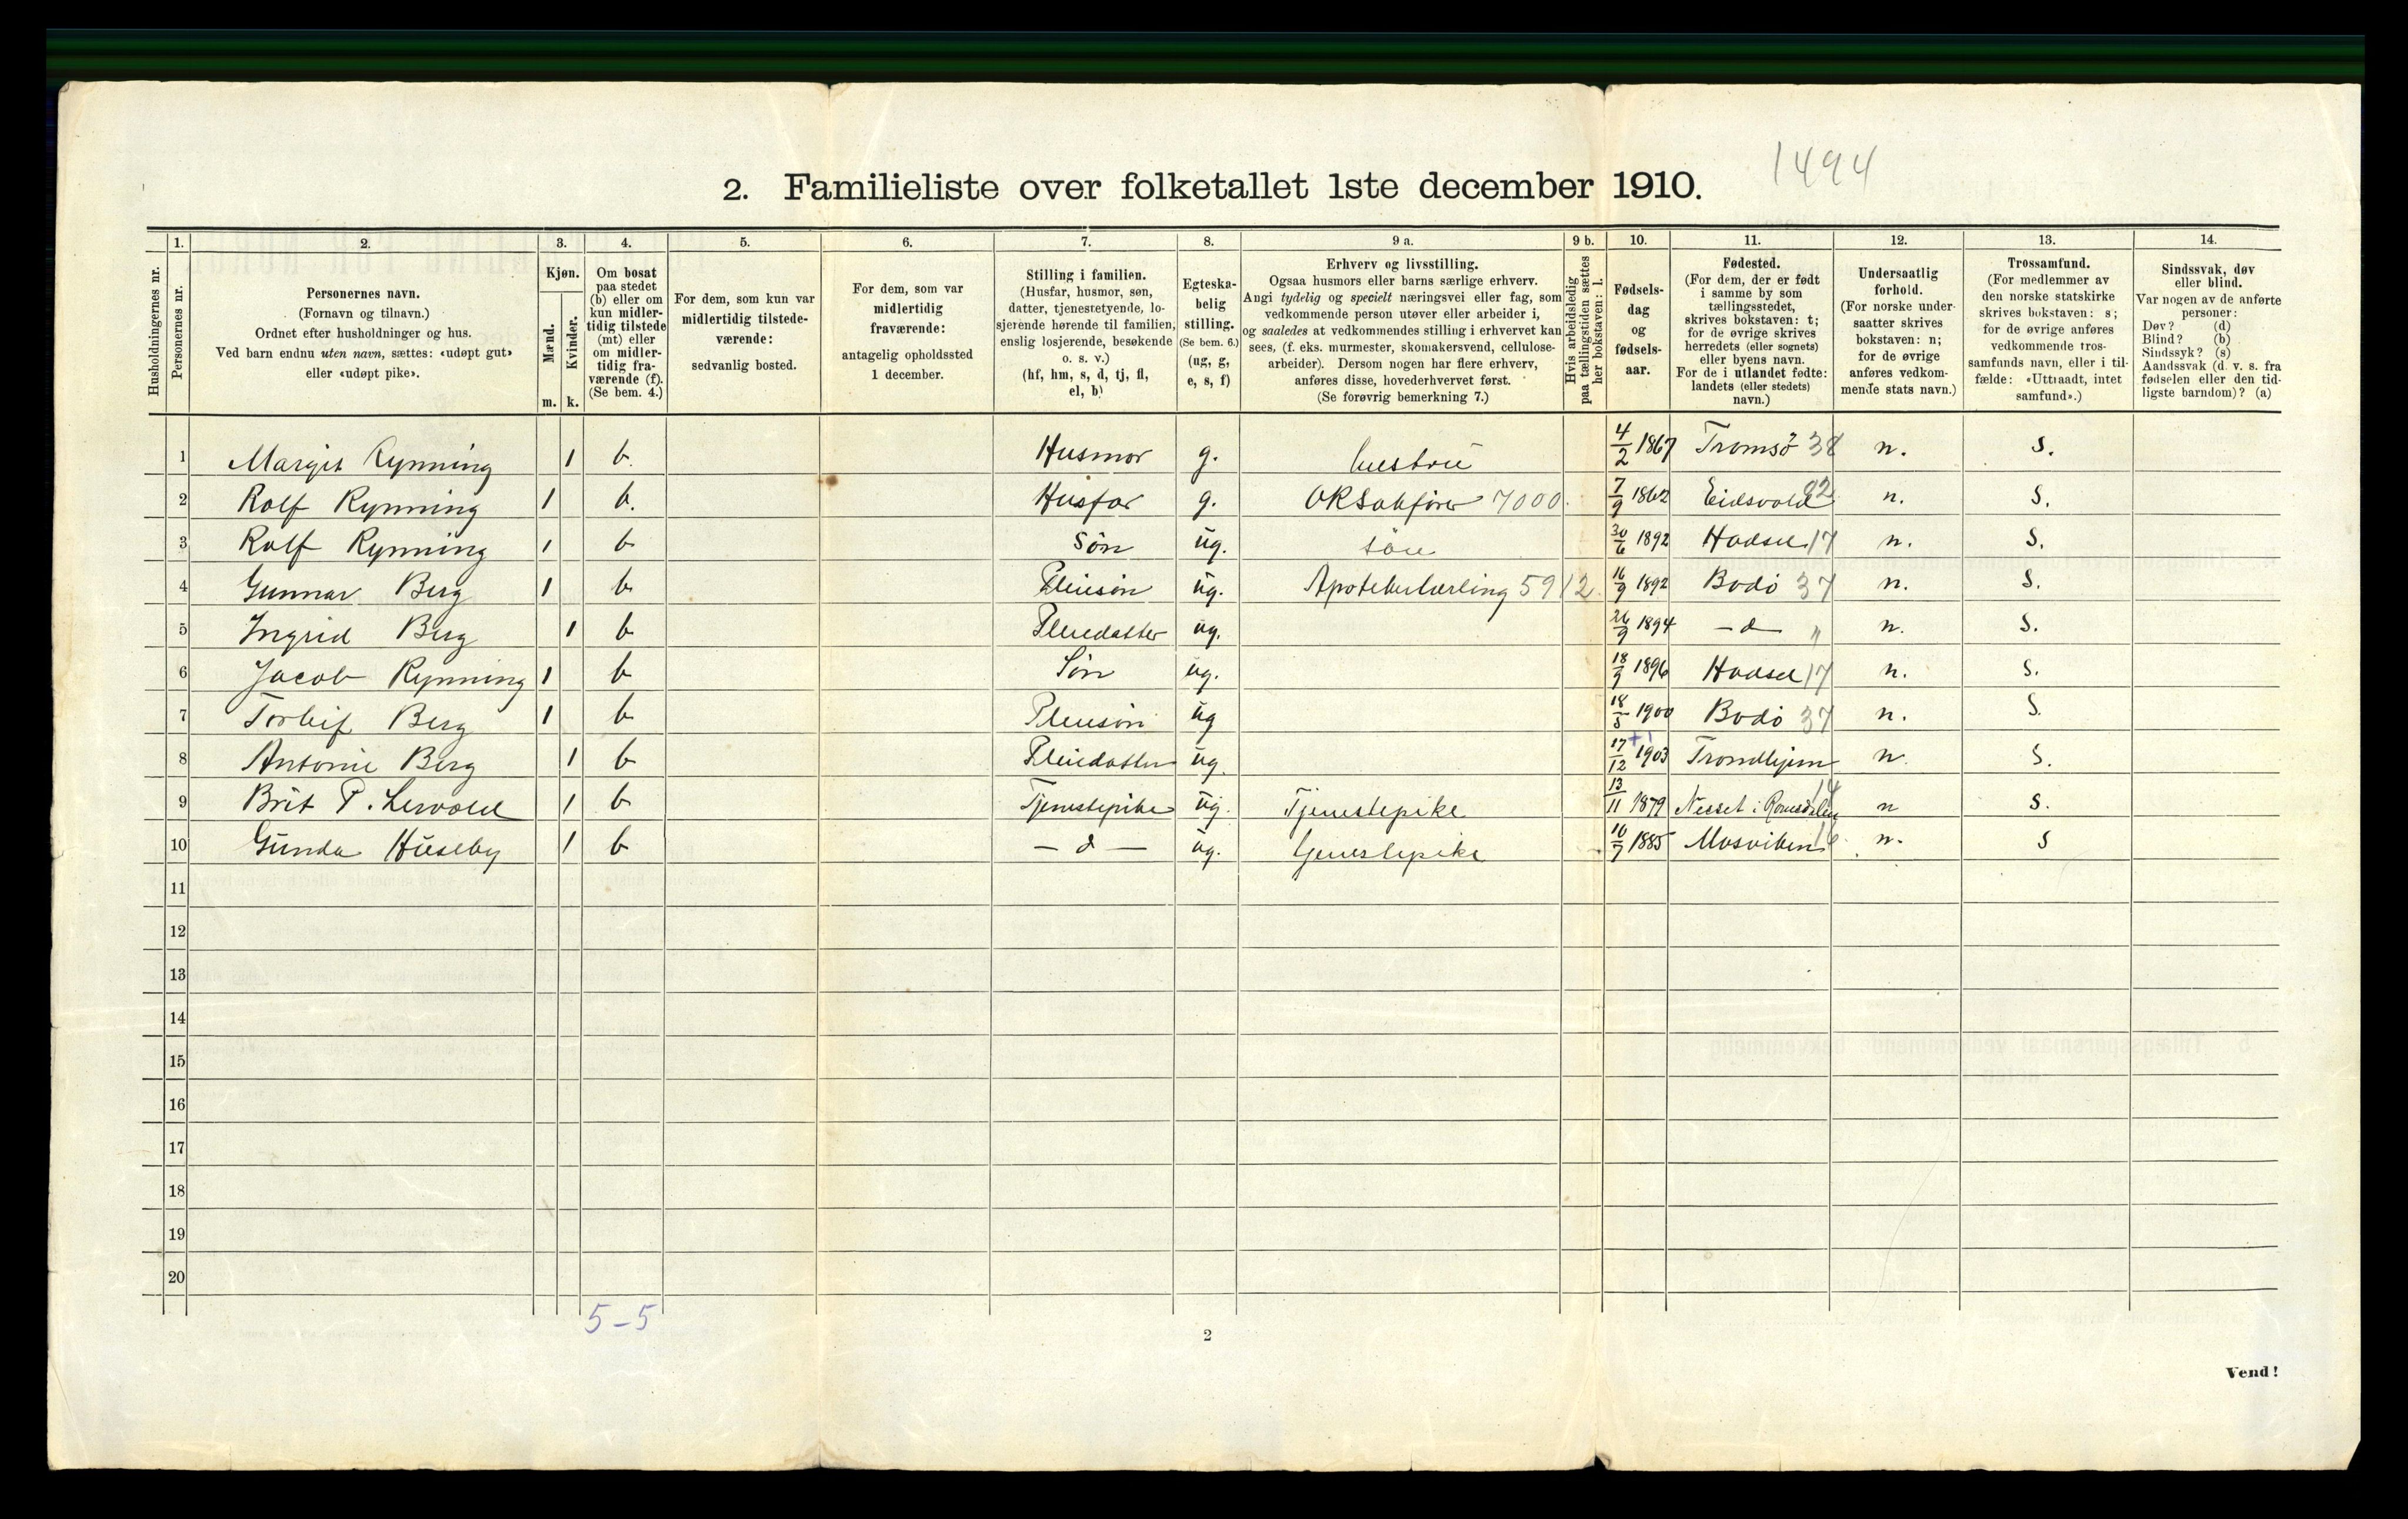 1494
2. Familieliste over folketallet 1ste december 1910.
Husholdningernes nr.
1. Personernes nr.
2. Personernes navn.
(Fornavn og tilnavn.)
Ordnet efter husholdninger og hus.
Ved barn endnu uten navn, sættes: «udøpt gut»
eller «udøpt pike».
3. Kjøn.
Mænd. m.
Kvinder. k.
4. Om bosat
paa stedet
(b) eller om
kun midler-
tidig tilstede
(mt) eller
om midler-
tidig fra-
værende (f).
(Se bem. 4.)
5. For dem, som kun var
midlertidig tilstede-
værende:
sedvanlig bosted.
6. For dem, som var
midlertidig
fraværende:
antagelig opholdssted
1 december.
7. Stilling i familien.
(Husfar, husmor, søn,
datter, tjenestetyende, lo-
sjerende hørende til familien,
enslig losjerende, besøkende
o. s. v.)
(hf, hm, s, d, tj, fl,
el, b)
8. Egteska-
belig
stilling.
(Se bem. 6.)
(ug, g,
e, s, f)
9 a. Erhverv og livsstilling.
Ogsaa husmors eller barns særlige erhverv.
Angi tydelig og specielt næringsvei eller fag, som
vedkommende person utøver eller arbeider i,
og saaledes at vedkommendes stilling i erhvervet kan
sees, (f. eks. murmester, skomakersvend, cellulose-
arbeider). Dersom nogen har flere erhverv,
anføres disse, hovederhvervet først.
(Se forøvrig bemerkning 7.)
9 b. Hvis arbeidsledig
paa tællingstiden sættes
her bokstaven: l.
10. Fødsels-
dag
og
fødsels-
aar.
11. Fødested.
(For dem, der er født
i samme by som
tællingsstedet,
skrives bokstaven: t;
for de øvrige skrives
herredets (eller sognets)
eller byens navn.
For de i utlandet fødte:
landets (eller stedets)
navn.)
12. Undersaatlig
forhold.
(For norske under-
saatter skrives
bokstaven: n;
for de øvrige
anføres vedkom-
mende stats navn.)
13. Trossamfund.
(For medlemmer av
den norske statskirke
skrives bokstaven: s;
for de øvrige anføres
vedkommende tros-
samfunds navn, eller i til-
fælde: «Uttraadt, intet
samfund».)
14. Sindssvak, døv
eller blind.
Var nogen av de anførte
personer:
Døv? (d)
Blind? (b)
Sindssyk? (s)
Aandssvak (d. v. s. fra
fødselen eller den tid-
ligste barndom)? (a)
1 Margit Rynning 1 b. Husmor g. hustru 4/2 1867 Tromsø 38 n. s.
2 Rolf Rynning 1 b. Husfar g. ORSakfører 7000. 7/9 1862 Eidsvold 92 n. s.
3 Rolf Rynning 1 b Søn ug. søn 30/6 1892 Hadsel 17 n. s.
4 Gunnar Berg 1 b Pleiesøn ug. Apotekerlærling 5912. 16/9 1892 Bodø 37 n. s.
5 Ingrid Berg 1 b Pleiedatter ug. 26/9 1894 — d — " n. s.
6 Jacob Rynning 1 b Søn ug. 18/9 1896 Hadsel 17 n. s.
7 Torleif Berg 1 b Pleiesøn ug 18/5 1900 Bodø 37 n. s.
8 Antonie Berg 1 b Pleiedatter ug. 17/12 1903 +1 Trondhjem n. s.
9 Brit P. 1 b Tjenestepike ug. Tjenestepike 13/11 1879 Nesset i Romsdalen 14 n s.
10 Gunda Huseby 1 b — d — ug. Tjenestepike 10/7 1885 Mosviken 16 n. s
11
12
13
14
15
16
17
18
19
20
5–5
2
Vend!